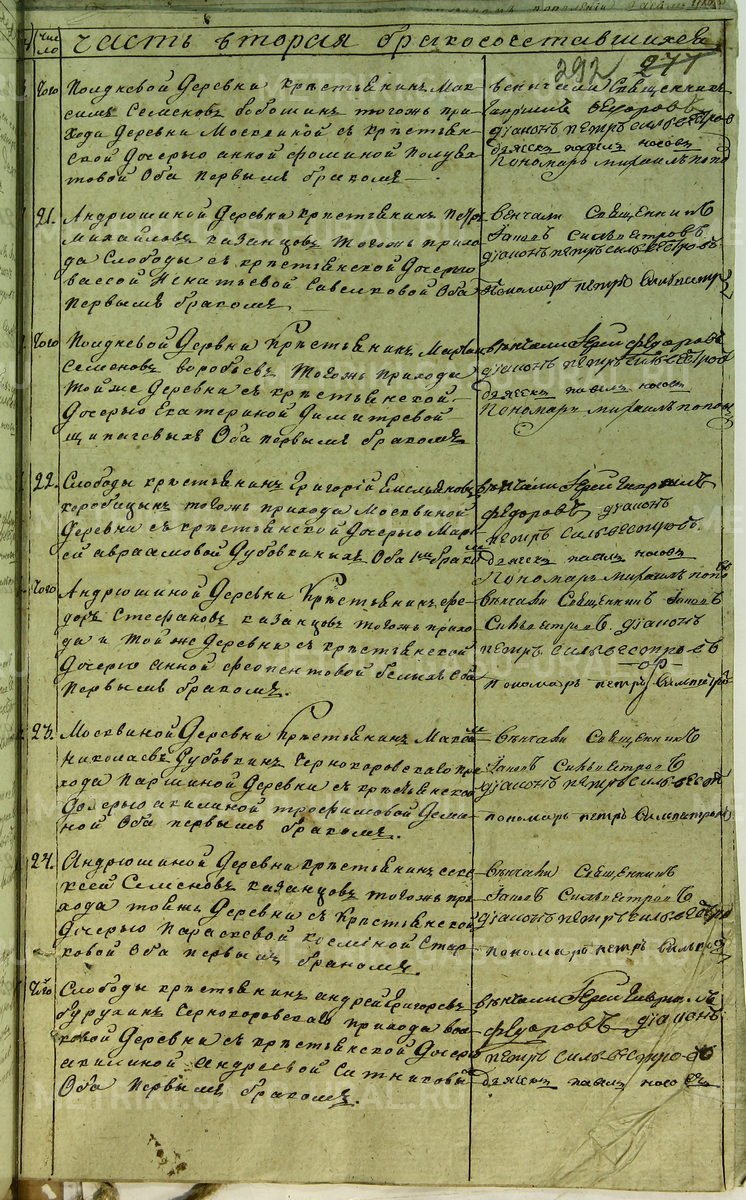 число
часть вторая бракосочетавшихся
292 277
того Полдневой Деревни крестьянинъ Мак
симъ Семеновъ бобошинъ тогожъ при
хода деревни Москвиной съ крестьян
ской дочерью анной фоминой Полуек
товой Оба первымъ бракомъ
венчали Священникъ
Гаврiилъ Федоровъ
дiаконъ петръ сильвестровъ
дьячекъ павелъ носовъ
Пономарь михаилъ попо
21. Андрюшиной Деревни крестьянинъ Петръ
Михайловъ казанцовъ тогожъ прихо
да Слободы съ крестьянской дочерью
вассой Игнатьевой Савелковой Оба
первымъ бракомъ
венчали Священникъ
Iаковъ Сильвестровъ
дiаконъ петръ сильвестровъ
пономарь петръ
того Полдневой Деревни Крестьянинъ Мартинъ
Семеновъ воробьевъ тогожъ прихода
тойже деревни съ крестьянской
дочерью Екатериной Димитревой
щипачевыхъ Оба первымъ бракомъ
вѣнчали Iерей федоровъ
дiаконъ петръ сильвестровъ
дьячекъ павелъ носовъ
Пономарь михаилъ поповъ
22. Слободы крестьянинъ Григорiй Емельяновъ
коробицынъ тогожъ прихода Москвиной
Деревни съ крестьянской дочерью Мар
ей авраамовой Дубовкиныхъ Оба 1мъ бракомъ
вѣнчали Iерей Гаврiилъ
федоровъ дiаконъ
петръ сильвестровъ
дьячекъ павелъ носовъ
Пономарь михаилъ поповъ
того Андрюшиной Деревни Крестьянинъ фе
доръ Стефановъ казанцовъ тогожъ прихо
да и той же деревни съ крестьянской
дочерью анной феопентовой белыхъ Оба
первымъ бракомъ.
вѣнчали Священникъ Iаковъ
Сильвестровъ дiаконъ
петръ сильвестровъ
пономарь петръ
23. Москвиной Деревни Крестьянинъ Макси
николаевъ Дубовкинъ Чернокоровскаго при
хода Паршиной Деревни съ крестьянской
дочерью акилиной трофимовой Деми
ной Оба первымъ бракомъ.
вѣнчали Священникъ
Iаковъ Сильвестровъ
дiаконъ петръ сильвест
пономарь петръ
24. Андрюшиной Деревни крестьянинъ
Семеновъ казанцовъ тогожъ при
хода тойжъ Деревни съ Крестьянской
дочерью Параскевой косминой Стар
ковой Оба первымъ бракомъ.
вѣнчали Священникъ
Iаковъ Сильвестровъ
дiаконъ петръ сильвестро
пономарь петръ
того Слободы крестьянинъ андрей Григорьевъ
бурухинъ Чернокоровскаго прихода
ковой Деревни съ крестьянской дочерью
акилиной андреевой Ситниковы
Оба первымъ бракомъ.
вѣнчали Iерей Гаврiилъ
федоровъ дiаконъ
петръ сильвестровъ
дьячекъ павелъ носовъ